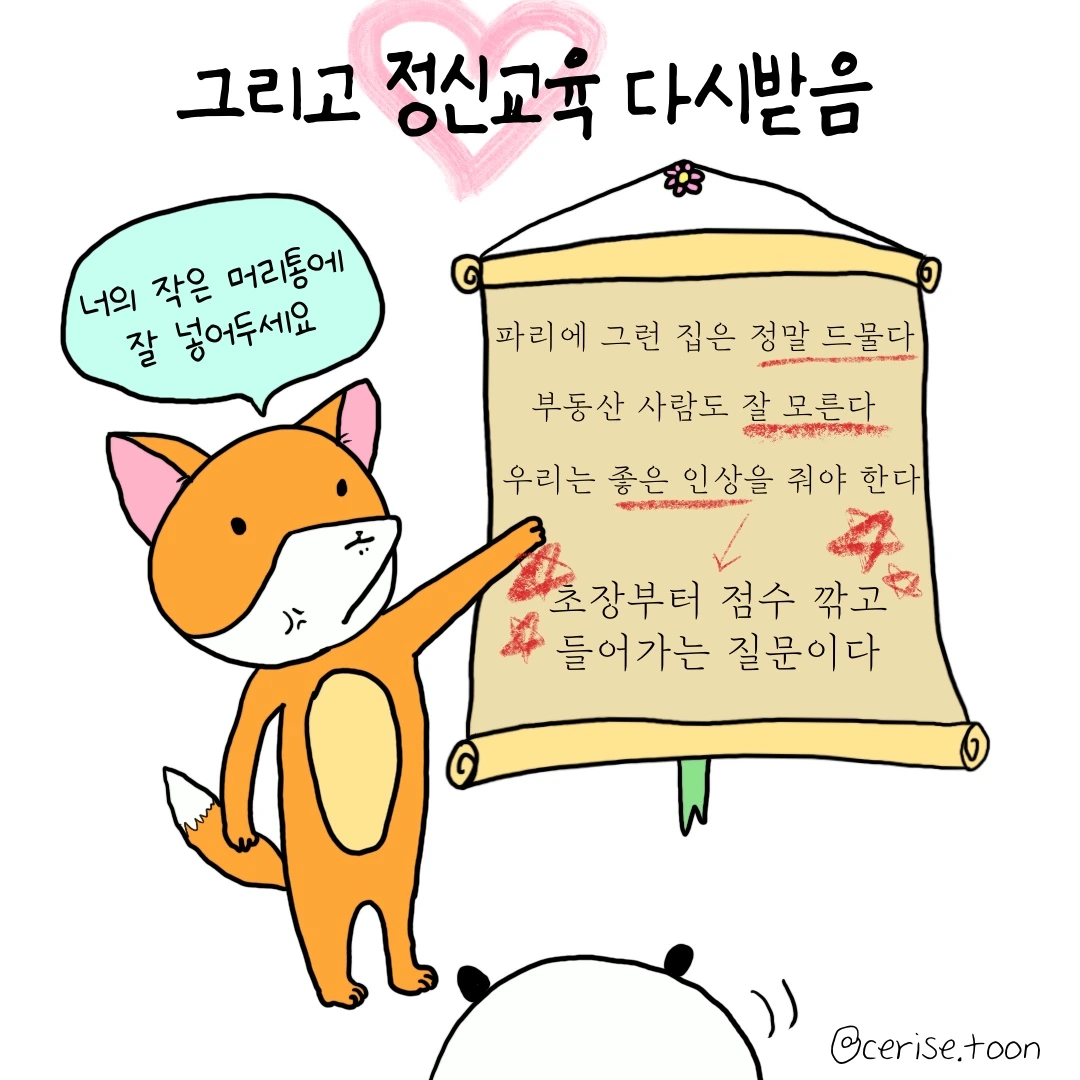 그리고 정신교육 다시받음
너의 작은 머리통에
잘 넣어두세요
파리에 그런 집은 정말 드물다
부동산 사람도 잘 모른다
우리는 좋은 인상을 줘야 한다
초장부터 점수 깎고
들어가는 질문이다
@cerise.toon